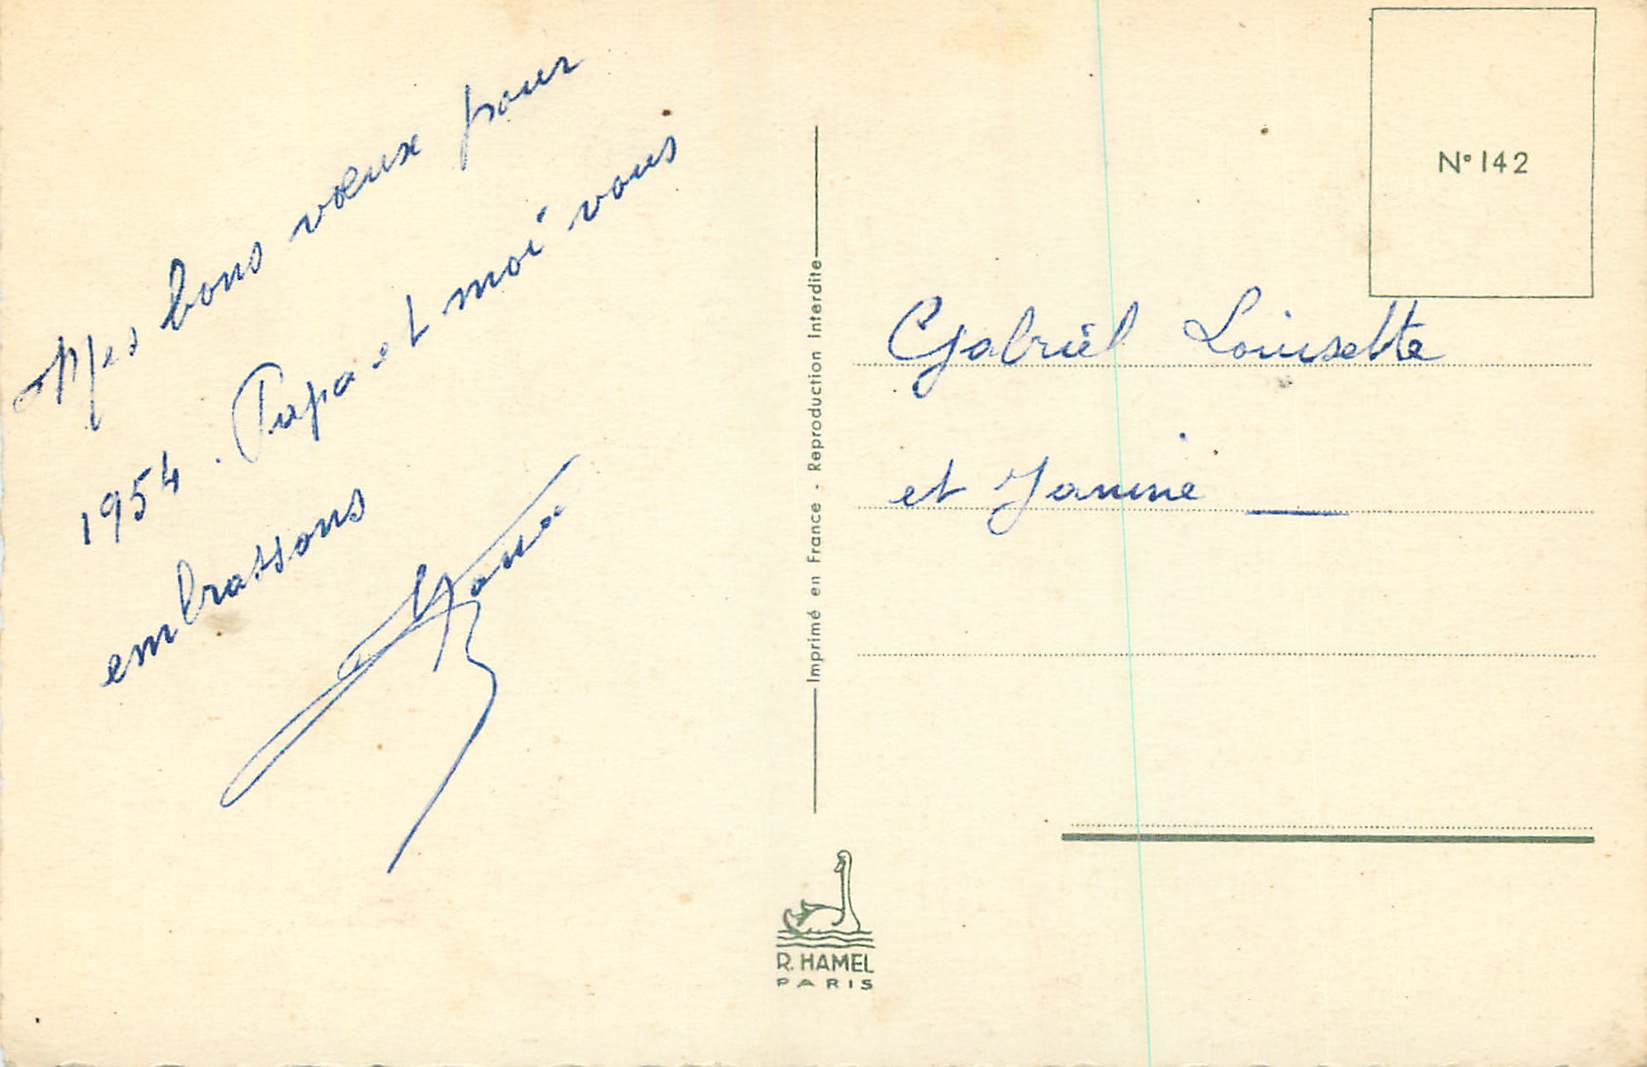 Mes bons vœux pour
1954. Papa et moi vous
embrassons
N° 142
Gabriël Louisette
et Janine
Imprimé en France - Reproduction Interdite
R. HAMEL
PARIS